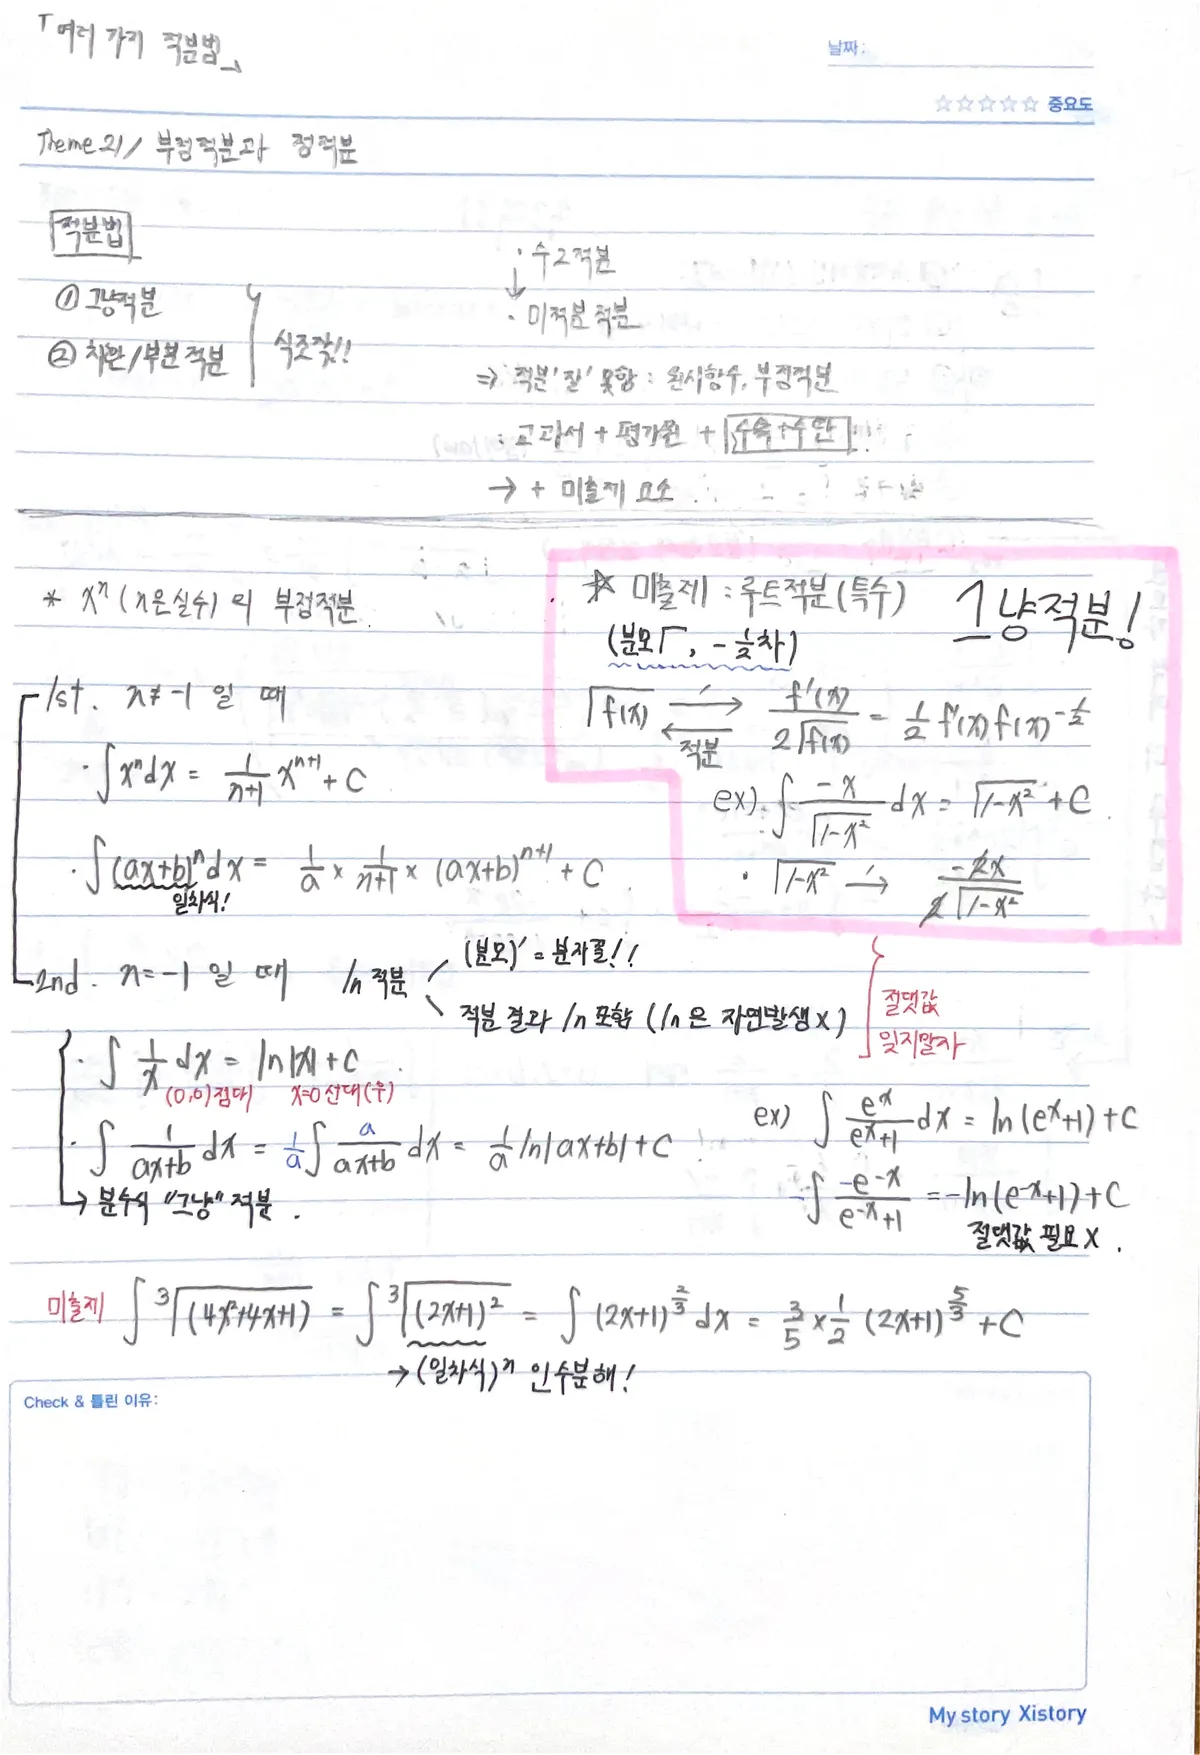 「여러 가지 적분법」
날짜:
☆☆☆☆☆ 중요도
Theme 21/ 부정적분과 정적분
적분법
① 그냥적분
② 치환/부분적분
식조작!!
· 수2적분
↓
· 미적분 적분
⇒ 적분 '잘' 못함 : 원시함수, 부정적분
: 교과서 + 평가원 + 수특+수완!!
→ + 미출제 요소
* xⁿ (n은 실수) 의 부정적분
1st. n≠-1 일 때
· ∫xⁿdx = 1/(n+1) xⁿ⁺¹ + C
· ∫(ax+b)ⁿdx = 1/a × 1/(n+1) × (ax+b)ⁿ⁺¹ + C
일차식!
* 미출제 : 루트적분(특수)
그냥적분!
(분모√ , -½차)
√f(x) ⟶′ f'(x)/(2√f(x)) = ½ f'(x) f(x)^(-½)
적분
ex) ∫ -x/√(1-x²) dx = √(1-x²) + C
· √(1-x²) →′ -2x/(2√(1-x²))
2nd. n=-1 일 때
ln 적분
(분모)' = 분자꼴!!
적분 결과 ln 포함 (ln은 자연발생 x)
절댓값
잊지말자
· ∫ 1/x dx = ln|x| + C
(0,0)점대 x=0 선대(우)
· ∫ 1/(ax+b) dx = 1/a ∫ a/(ax+b) dx = 1/a ln|ax+b| + C
→ 분수식 "그냥" 적분.
ex) ∫ eˣ/(eˣ+1) dx = ln(eˣ+1) + C
-∫ -e⁻ˣ/(e⁻ˣ+1) = -ln(e⁻ˣ+1) + C
절댓값 필요 X.
미출제 ∫ ³√(4x²+4x+1) = ∫ ³√(2x+1)² = ∫ (2x+1)^(2/3) dx = 3/5 × 1/2 (2x+1)^(5/3) + C
→ (일차식)ⁿ 인수분해!
Check & 틀린 이유:
My story Xistory